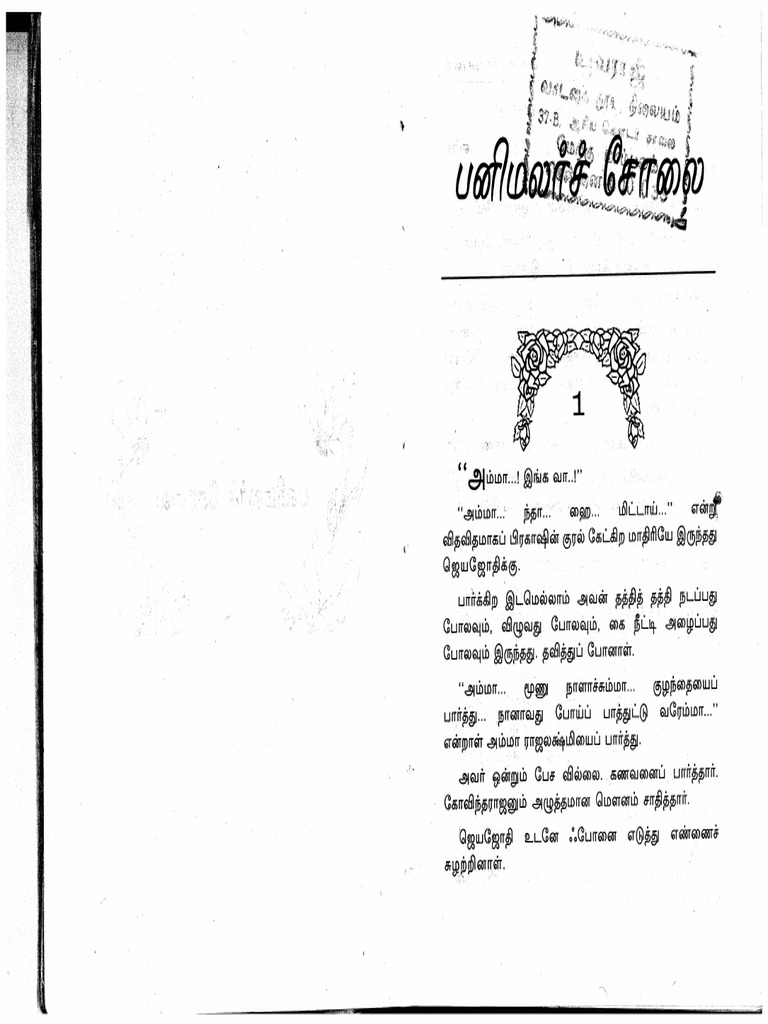 நிலையம்
37-B,
பனிமலர்ச் சோலை
1
“அம்மா...! இங்க வா..!”
“அம்மா... ந்தா... ஹை... மிட்டாய்...” என்று
விதவிதமாகப் பிரகாஷின் குரல் கேட்கிற மாதிரியே இருந்தது
ஜெயஜோதிக்கு.
பார்க்கிற இடமெல்லாம் அவன் தத்தித் தத்தி நடப்பது
போலவும், விழுவது போலவும், கை நீட்டி அழைப்பது
போலவும் இருந்தது. தவித்துப் போனாள்.
“அம்மா... மூணு நாளாச்சும்மா... குழந்தையைப்
பார்த்து... நானாவது போய்ப் பாத்துட்டு வரேம்மா...”
என்றாள் அம்மா ராஜலக்ஷ்மியைப் பார்த்து.
அவர் ஒன்றும் பேச வில்லை. கணவனைப் பார்த்தார்.
கோவிந்தராஜனும் அழுத்தமான மௌனம் சாதித்தார்.
ஜெயஜோதி உடனே ஃபோனை எடுத்து எண்ணைச்
சுழற்றினாள்.